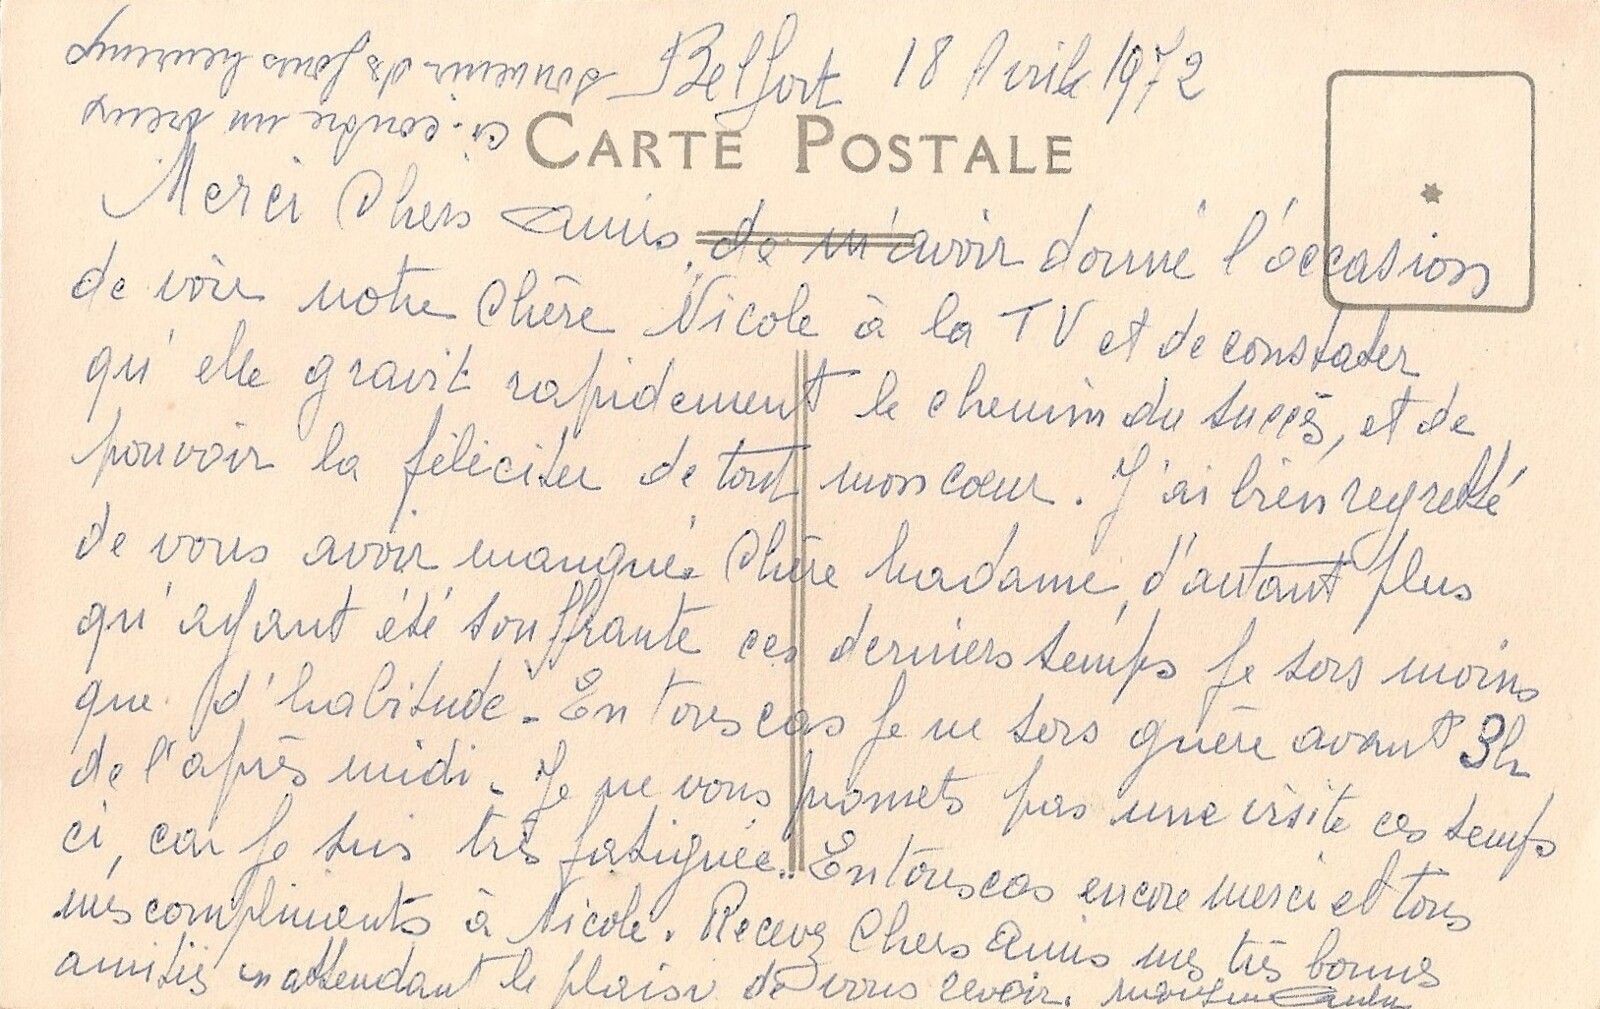 Belfort 18 Avril 1972
CARTE POSTALE
Merci Chers Amis, de m'avoir donné l'occasion
de voir notre Chère Nicole à la TV et de constater
qu'elle gravit rapidement le chemin du succès, et de
pouvoir la féliciter de tout mon coeur. J'ai bien regretté
de vous avoir manquée Chère Madame, d'autant plus
qu'ayant été souffrante ces derniers temps je sors moins
que d'habitude - En tous cas je ne sors guère avant 3h
de l'après midi - Je ne vous promets pas une visite ces temps
ci, car je suis très fatiguée.. En tous cas encore merci et tous
mes compliments à Nicole. Recevez Chers Amis mes très bonnes
amitiés en attendant le plaisir de vous revoir.
ci-contre un vieux
souvenir des jours heureux